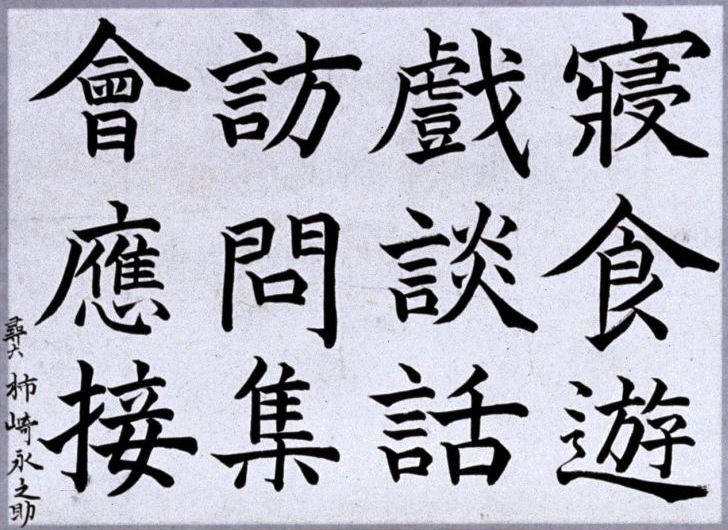 寢食遊
戲談話
訪問集
會應接
尋六 柿崎永之助